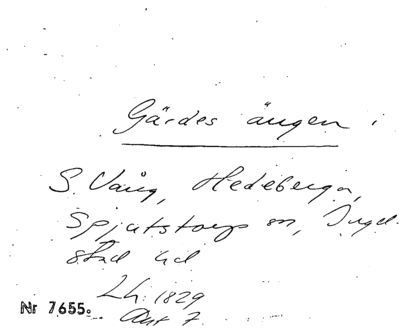 Gärdes ängen i
S. Vång, Hedeberga,
Spjutstorps sn, Ingel-
stad hd
Lh. 1829
Akt 7.
Nr 7655.